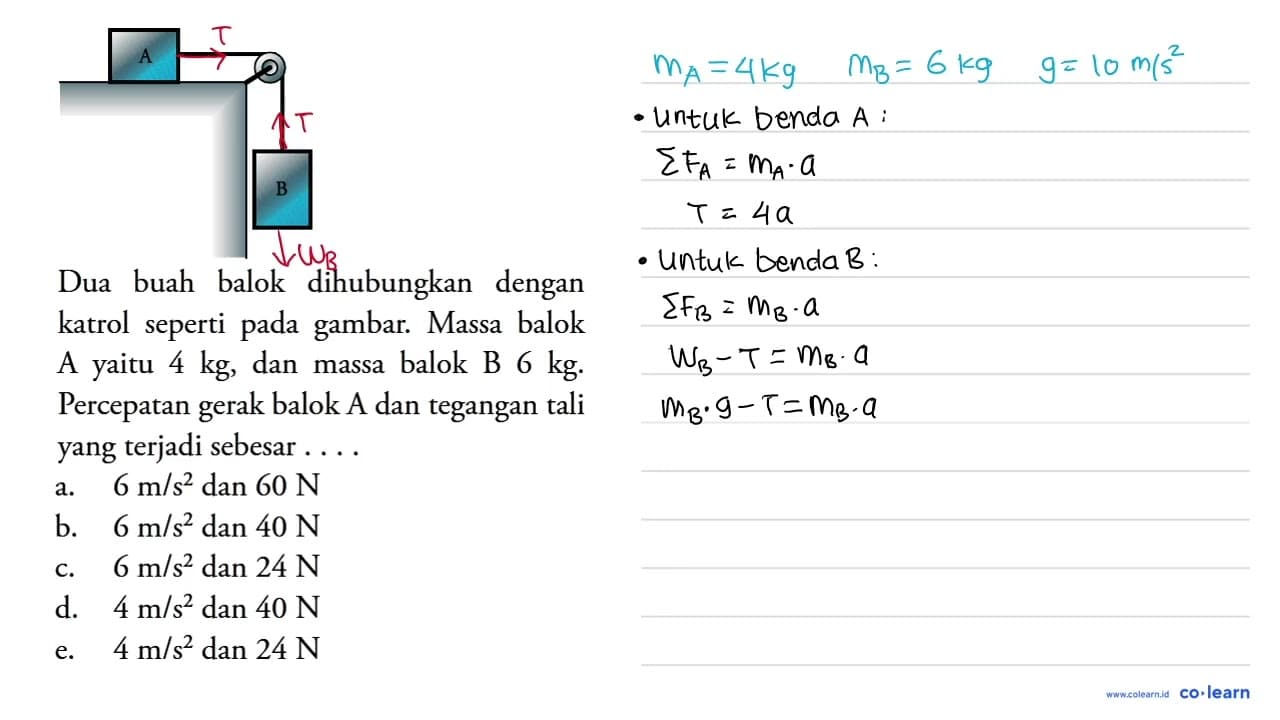 A
T
T
B
W_B
Dua buah balok dihubungkan dengan
katrol seperti pada gambar. Massa balok
A yaitu 4 kg, dan massa balok B 6 kg.
Percepatan gerak balok A dan tegangan tali
yang terjadi sebesar . . . .
a. 6 m/s² dan 60 N
b. 6 m/s² dan 40 N
c. 6 m/s² dan 24 N
d. 4 m/s² dan 40 N
e. 4 m/s² dan 24 N
m_A = 4 kg m_B = 6 kg g = 10 m/s²
• Untuk benda A :
ΣF_A = m_A . a
T = 4a
• Untuk benda B :
ΣF_B = m_B . a
W_B - T = m_B . a
m_B . g - T = m_B . a
www.colearn.id co·learn